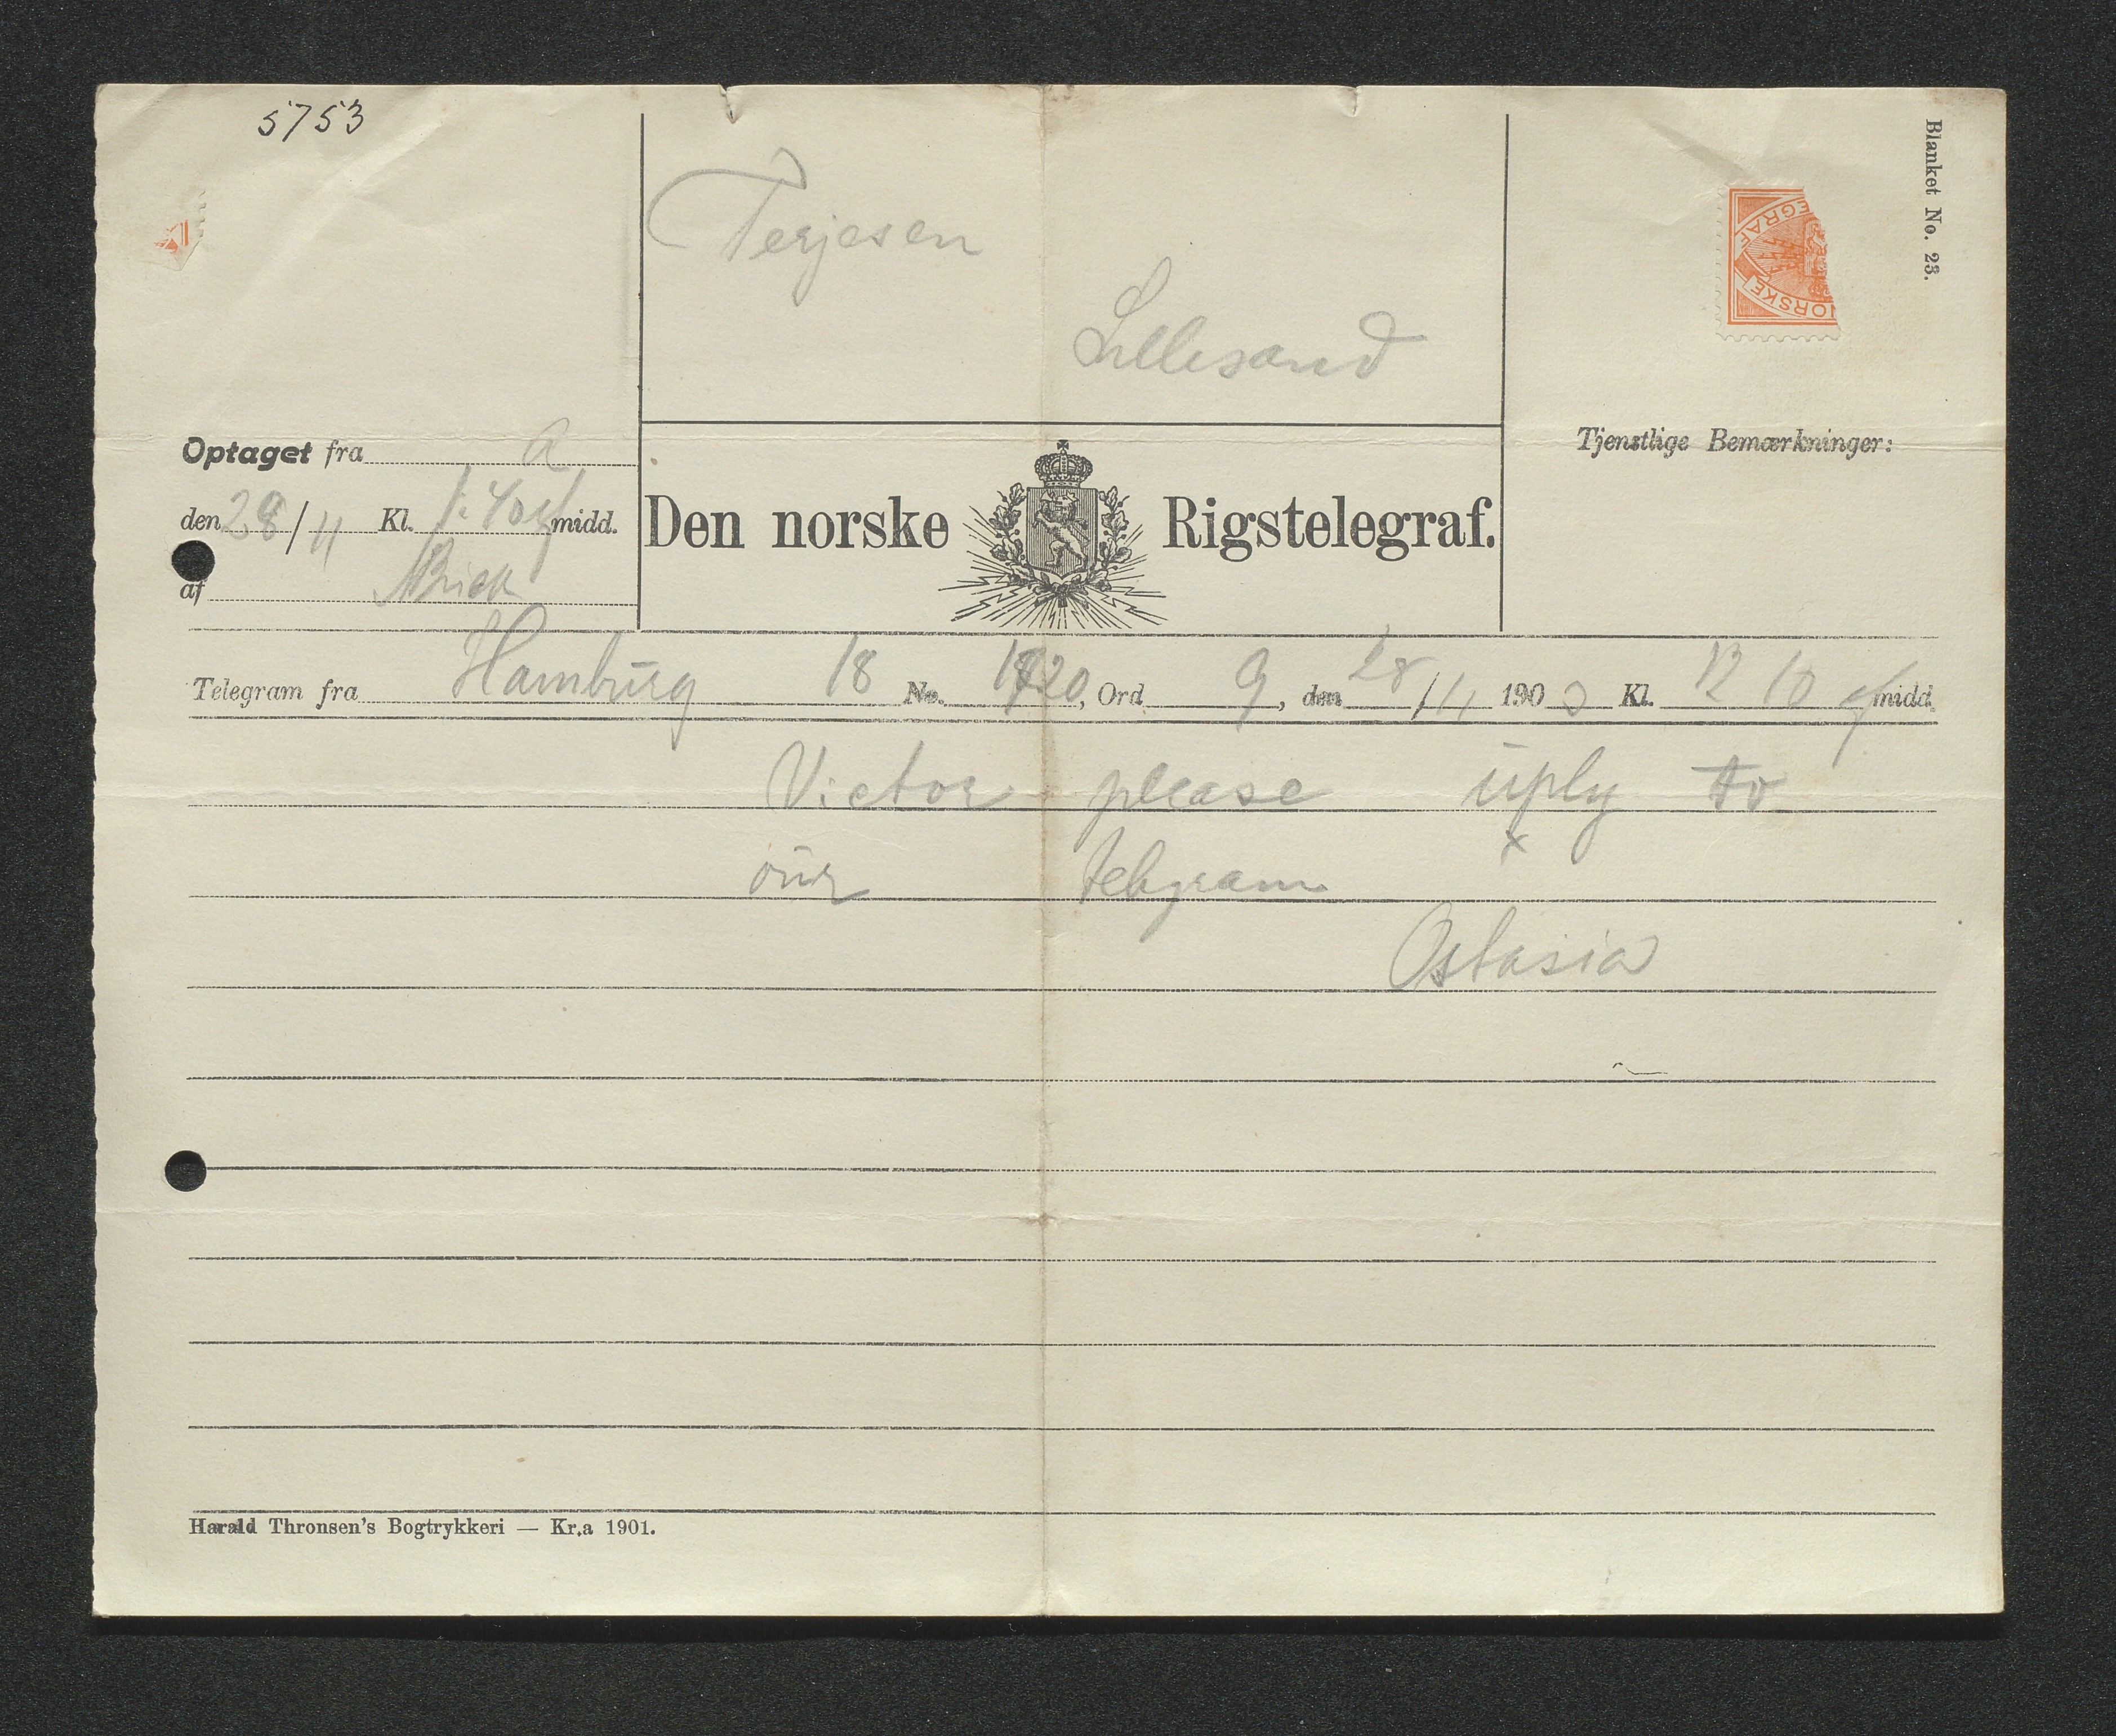 5753
Terjesen
Lillesand
Blanket No. 23.
EGRAF
NORSKE
Optaget fra a
Tjenstlige Bemærkninger:
den 28/11 Kl. 1.40 ef midd.
Den norske Rigstelegraf.
af
Telegram fra Hamburg 18 No. 20, Ord 9, den 28/11 1903 Kl. 12 10 ef midd.
Victor please uply to
our telegram
Ostasia
Harald Thronsen's Bogtrykkeri — Kr.a 1901.